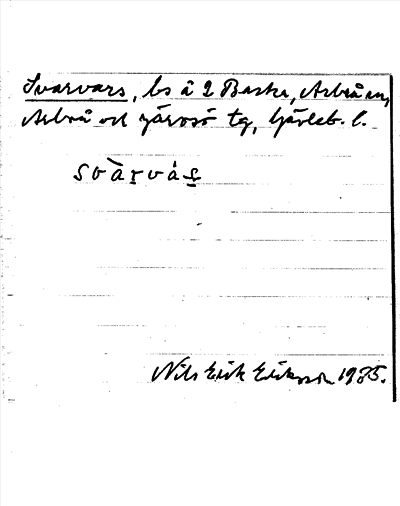 Svarvars, bs å 2 Baske, Arbrå sn,
Arbrå och Järvsö tg, Gävleb. l.
svàrvás̱
Nils Erik Eriksson 1935.